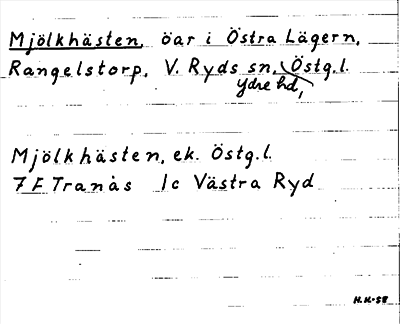 Mjölkhästen, öar i Östra Lägern,
Rangelstorp, V. Ryds sn, Östg.l.
Ydre hd,
Mjölkhästen, ek. Östg.l.
7 F Tranås 1c Västra Ryd
H.K-58